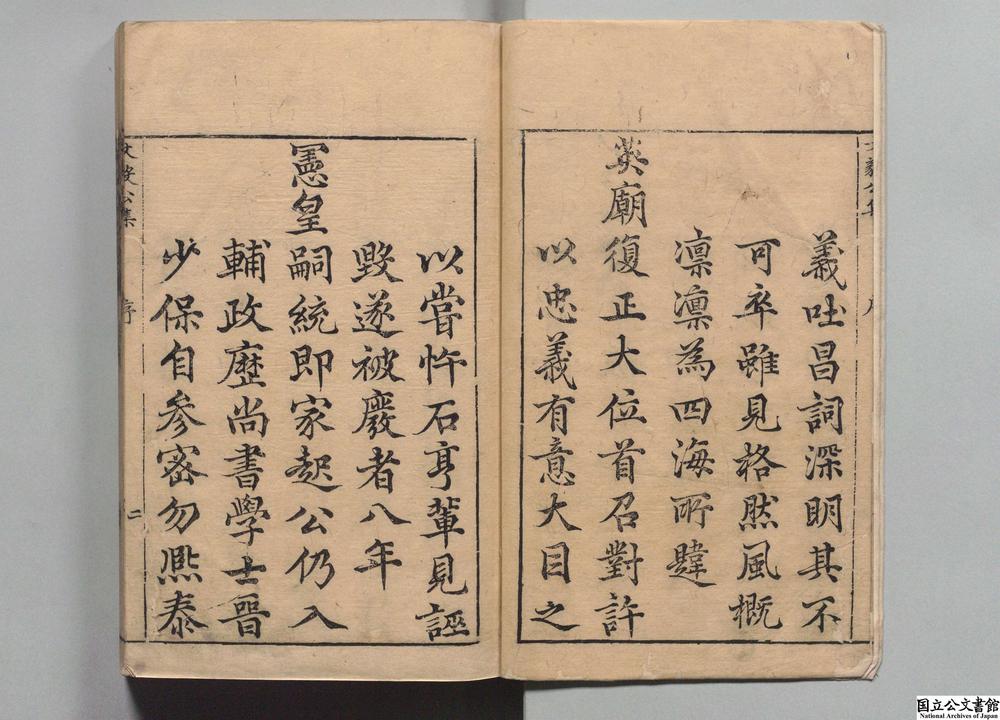 義吐昌詞深明其不
可卒雖見格然風概
凛凛為四海所韙
英廟復正大位首召對許
以忠義有意大目之
以嘗忤石亨輩見誣
毀遂被廢者八年
憲皇嗣統即家起公仍入
輔政歷尚書學士晉
少保自參密勿熙泰
文毅公集
序
二
国立公文書館
National Archives of Japan